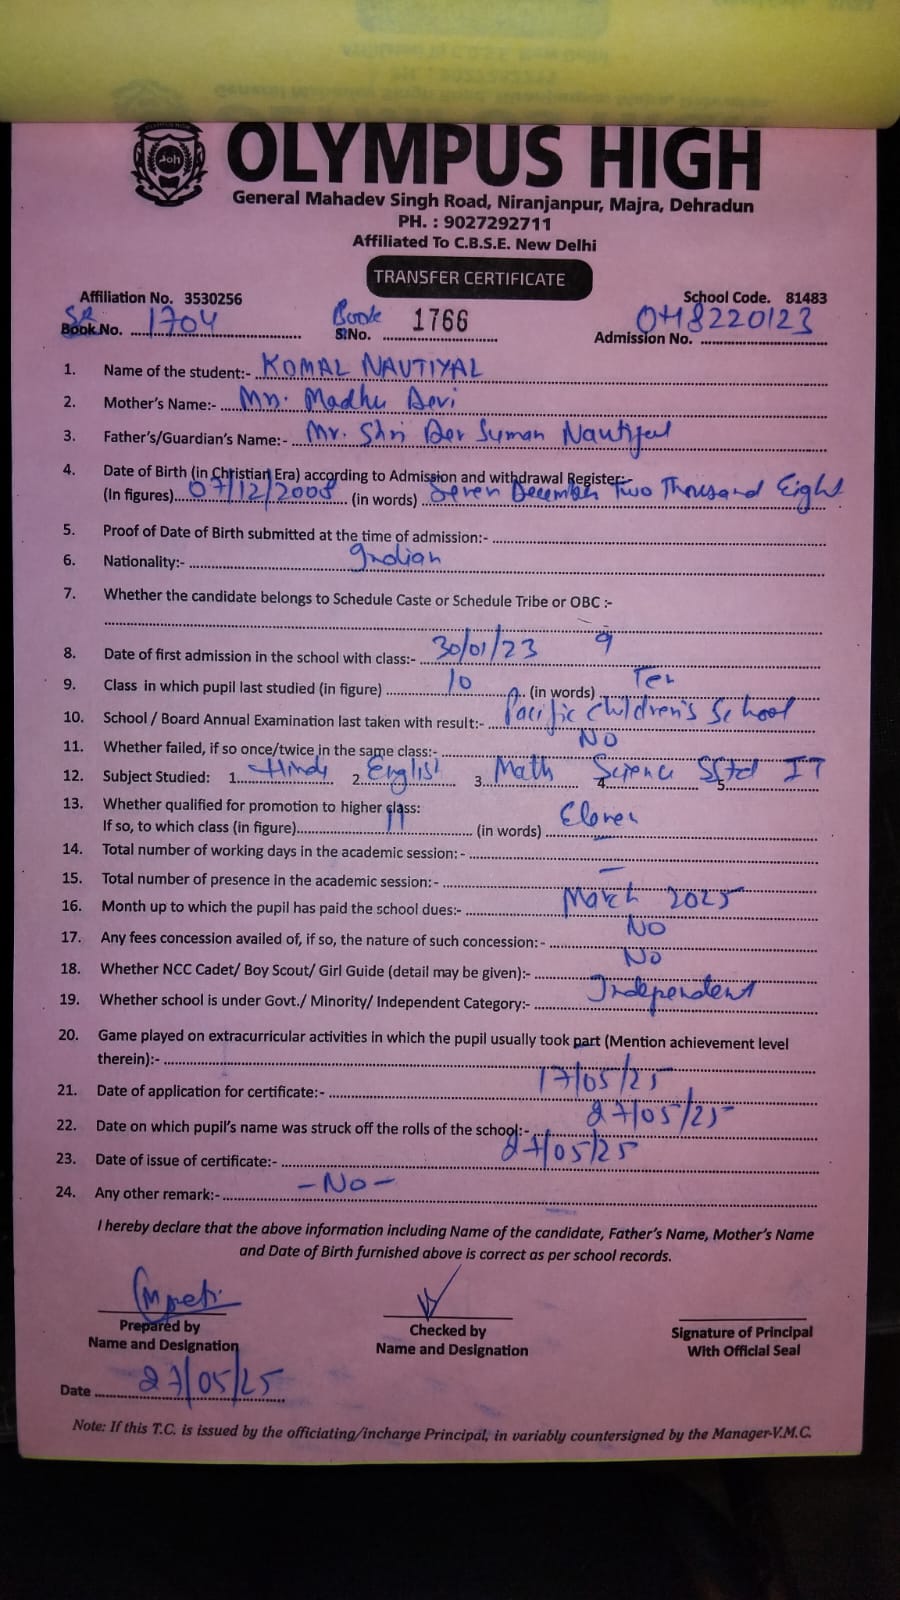 OLYMPUS HIGH
General Mahadev Singh Road, Niranjanpur, Majra, Dehradun
PH. : 9027292711
Affiliated To C.B.S.E. New Delhi
TRANSFER CERTIFICATE
Affiliation No. 3530256 School Code. 81483
SR Book No. 1704 Book Sl.No. 1766 Admission No. OH8220123
1. Name of the student:- KOMAL NAUTIYAL
2. Mother's Name:- Mrs. Madhu Devi
3. Father's/Guardian's Name:- Mr. Shri Dev Suman Nautiyal
4. Date of Birth (in Christian Era) according to Admission and withdrawal Register:-
(In figures) 07/12/2008 (in words) Seven December Two Thousand Eight
5. Proof of Date of Birth submitted at the time of admission:-
6. Nationality:- Indian
7. Whether the candidate belongs to Schedule Caste or Schedule Tribe or OBC :-
8. Date of first admission in the school with class:- 30/01/23 9
9. Class in which pupil last studied (in figure) 10 (in words) Ten
10. School / Board Annual Examination last taken with result:- Pacific Children's School
11. Whether failed, if so once/twice in the same class:- NO
12. Subject Studied: 1. Hindi 2. English 3. Math 4. Science SStd 5. IT
13. Whether qualified for promotion to higher class:
If so, to which class (in figure) 11 (in words) Eleven
14. Total number of working days in the academic session: -
15. Total number of presence in the academic session:- —
16. Month up to which the pupil has paid the school dues:- March 2025
17. Any fees concession availed of, if so, the nature of such concession: - NO
18. Whether NCC Cadet/ Boy Scout/ Girl Guide (detail may be given):- NO
19. Whether school is under Govt./ Minority/ Independent Category:- Independent
20. Game played on extracurricular activities in which the pupil usually took part (Mention achievement level
therein):-
21. Date of application for certificate:- 17/05/25
22. Date on which pupil's name was struck off the rolls of the school:- 27/05/25
23. Date of issue of certificate:- 27/05/25
24. Any other remark:- -No-
I hereby declare that the above information including Name of the candidate, Father's Name, Mother's Name
and Date of Birth furnished above is correct as per school records.
Prepared by Checked by Signature of Principal
Name and Designation Name and Designation With Official Seal
Date 27/05/25
Note: If this T.C. is issued by the officiating/incharge Principal, in variably countersigned by the Manager-V.M.C.